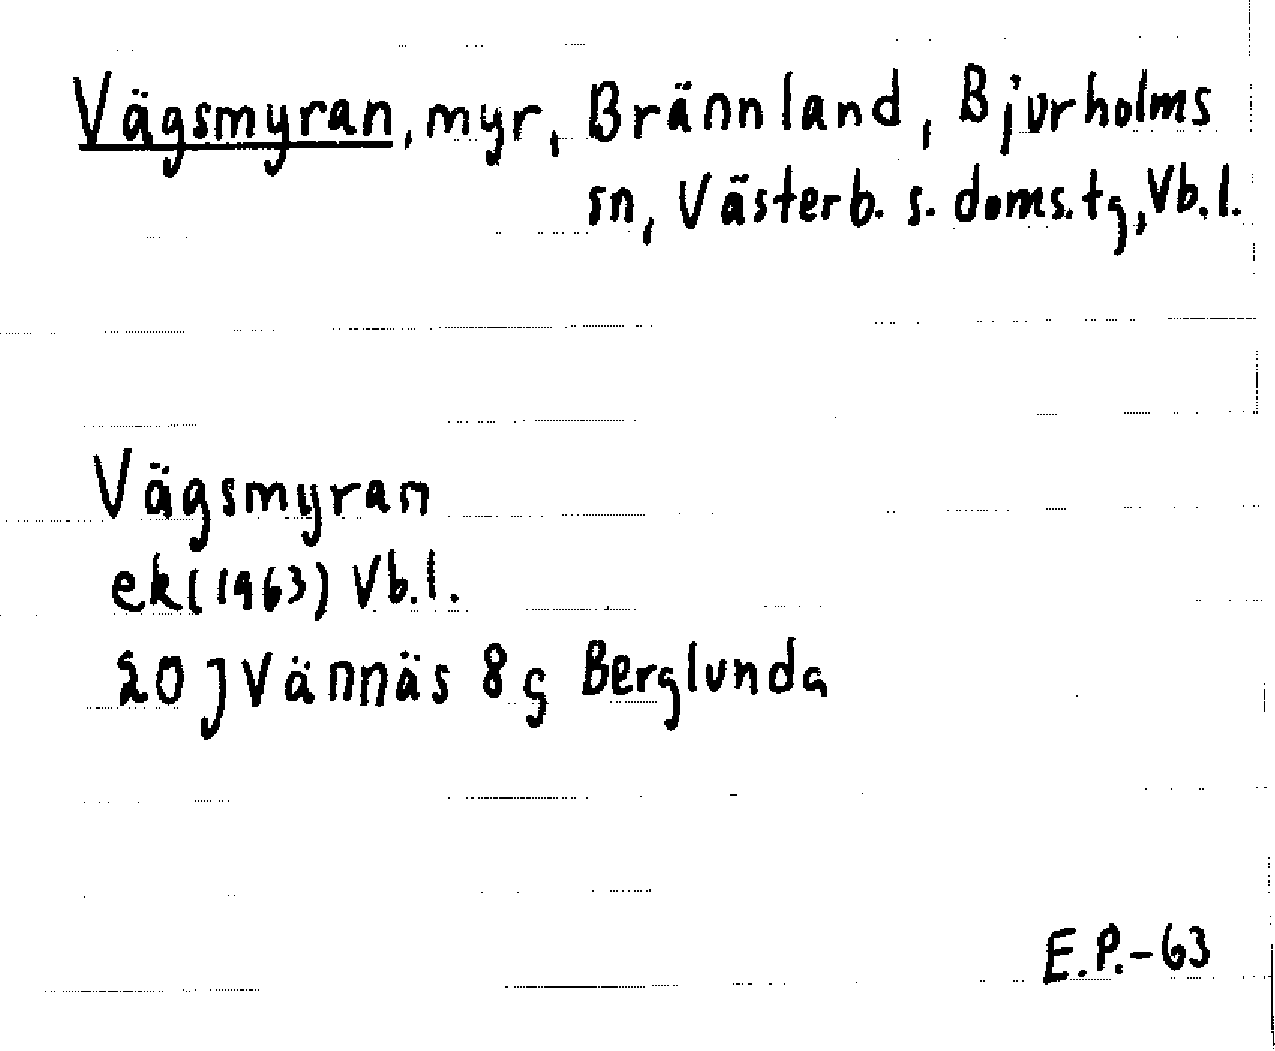 Vägsmyran, myr, Brännland, Bjurholms
sn, Västerb. s. doms.tg, Vb.l.
Vägsmyran
ek(1963) Vb.l.
20 J Vännäs 8g Berglunda
E.P.-63